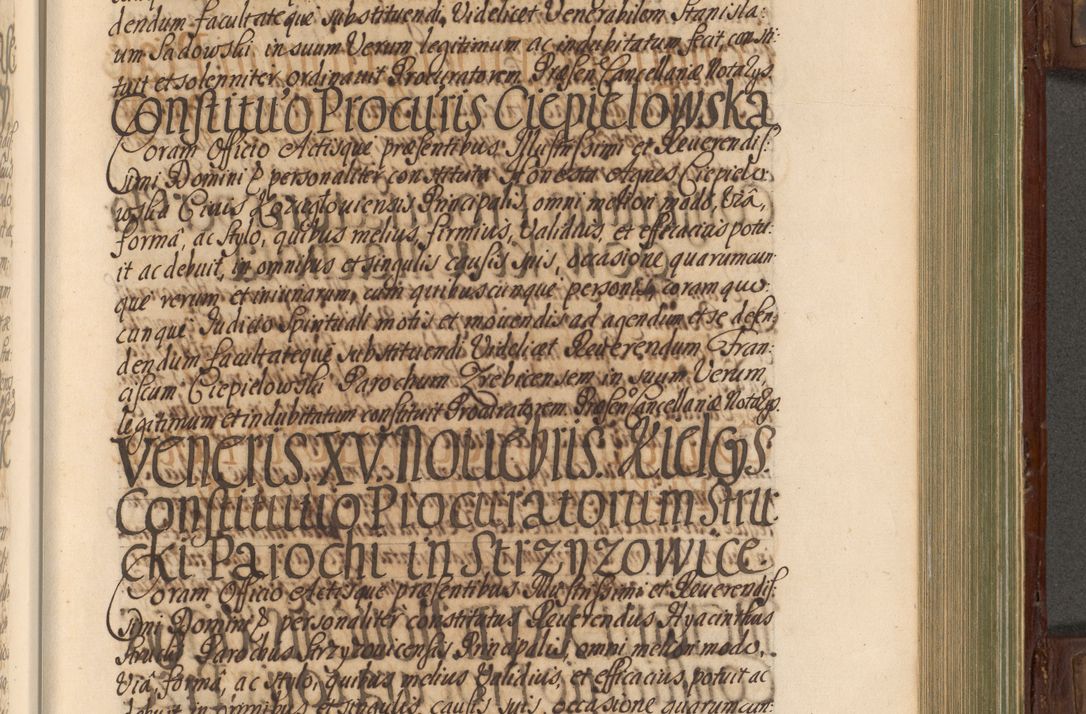 dendum facultateque substituendi, Videlicet Venerabilem Stanisla:
um Sadowski in suum Verum legitimum ac indubitatum fecit, consti:
tuit et solenniter ordinavit Procuratorem. Præsen: Cancellariæ Notarys
Constituo Procuris Ciepielowska
Coram Officio Actisque præsentibus Illustrissimi et Reuerendis:
simi Domini & personaliter constituta Honesta Agnes Ciepielo:
wska Ciuis Principalis, omni meliori modo, Viâ,
formâ, ac stylo, quibus melius, firmius, Validius, et efficacius potu:
it ac debuit, in omnibus et singulis causis suis, occasione quarumcun:
que rerum et iniuriarum, cum quibuscunque personis, coram quo:
cunque Iudicio Spirituali motis et mouendis ad agendum et se defen:
dendum facultateque substituendi Videlicet Reuerendum Fran:
ciscum Ciepielowski Parochum Zrebicensem in suum Verum,
legitimum et indubitatum constituit Procuratorem. Præsen: Cancellariæ Notarys.
Veneris XV. Nouebris. Kielcys.
Constitutio Procuratorum Stru:
cki Parochi in Strzyzowice
Coram Officio Actisque præsentibus Illustrissimi et Reuerendis:
simi Domini & personaliter constitutus Reuerendus Hyacinthus
Strucki Parochus Strzyzouicensis Principalis, omni meliori modo,
Viâ, formâ, ac stylo, quibus melius Validius, et efficacius, potuit ac
debuit in omnibus et singulis causis suis, occasione quarumcun: